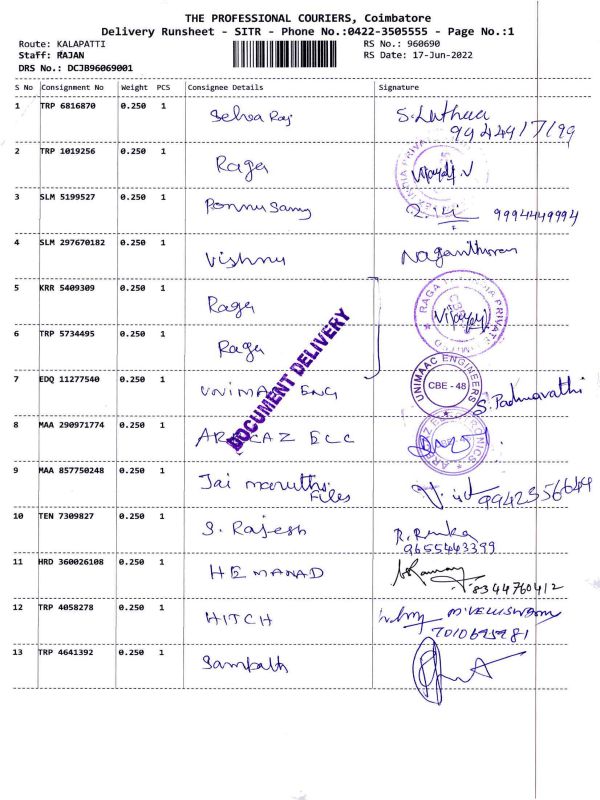 THE PROFESSIONAL COURIERS, Coimbatore
Delivery Runsheet - SITR - Phone No.:0422-3505555 - Page No.:1
Route: KALAPATTI RS No.: 960690
Staff: RAJAN RS Date: 17-Jun-2022
DRS No.: DCJB96069001
S No Consignment No Weight PCS Consignee Details Signature
1 TRP 6816870 0.250 1 Selva Raj
2 TRP 1019256 0.250 1 Raga Vijayaj.V
3 SLM 5199527 0.250 1 Ponnusamy 9994449994
4 SLM 297670182 0.250 1 Vishnu
5 KRR 5409309 0.250 1 Raga
6 TRP 5734495 0.250 1 Raga
DOCUMENT DELIVERY
7 EDQ 11277540 0.250 1 ENG UNIMAAC ENGINEERS CBE - 48 S. Padmavathi
8 MAA 290971774 0.250 1
9 MAA 857750248 0.250 1 Jai maruthi Files 9942356644
10 TEN 7309827 0.250 1 S. Rajesh
9655443399
11 HRD 360026108 0.250 1 HEMANAD 8344760412
12 TRP 4058278 0.250 1 HITCH
13 TRP 4641392 0.250 1 Sampath